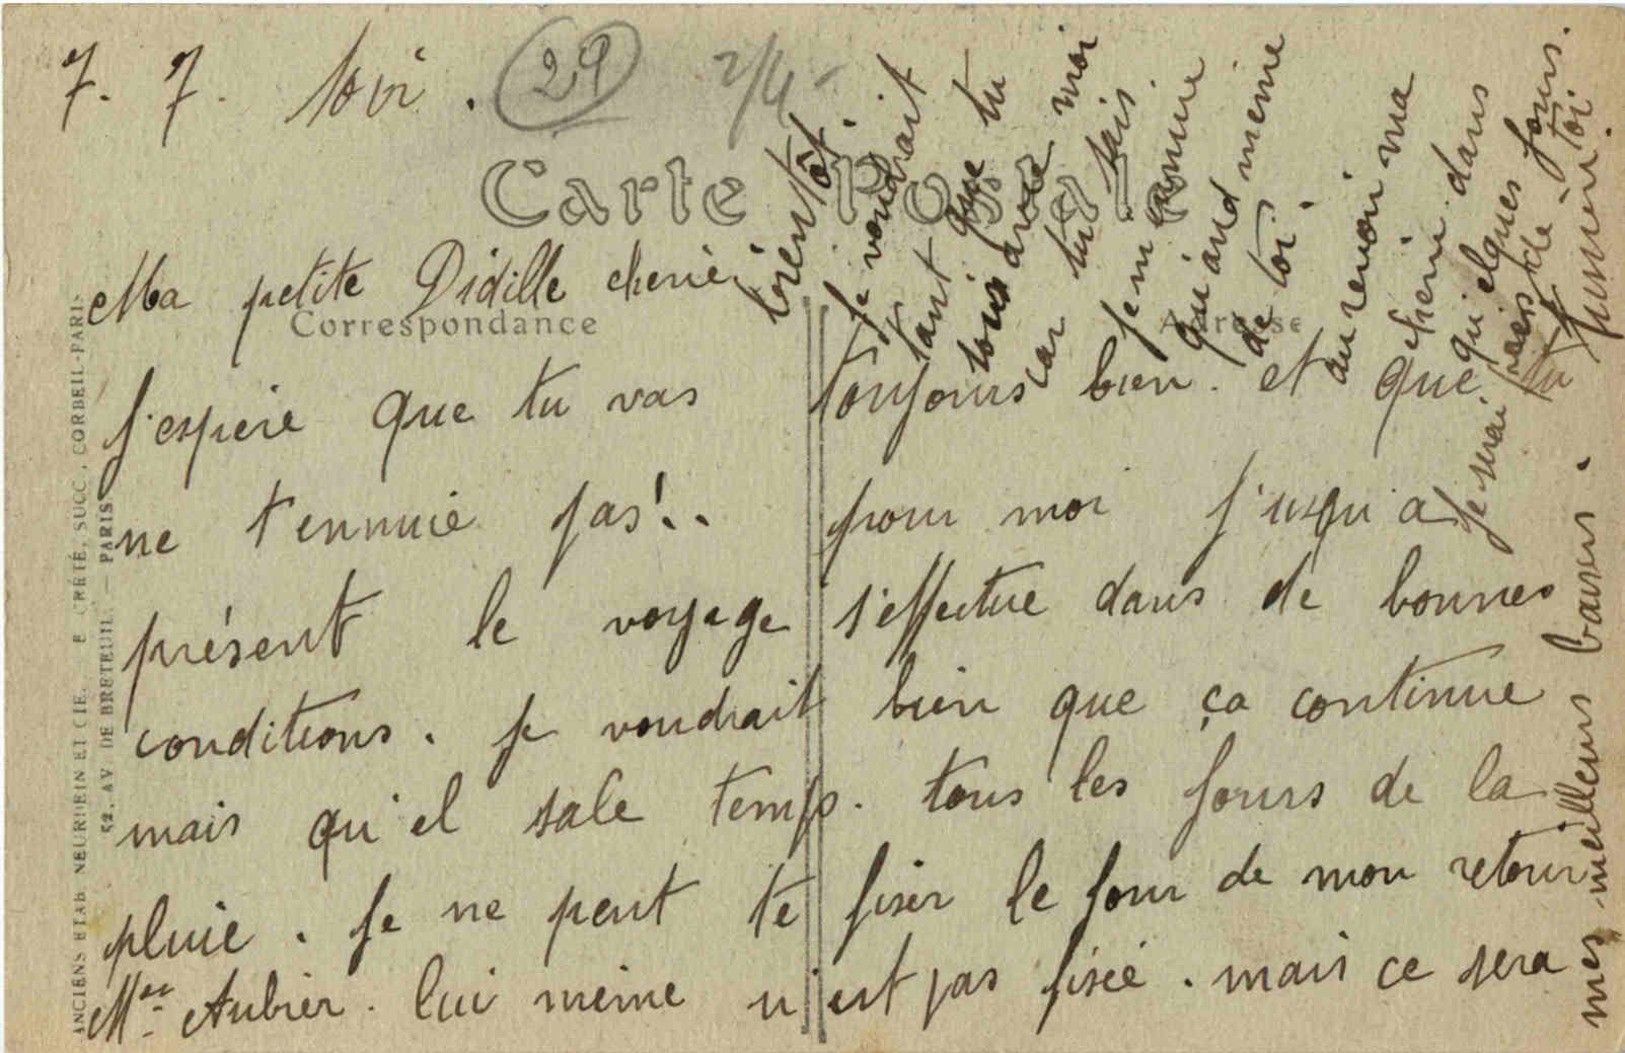 7. 7.
29
2/4
Carte Postale
Correspondance
Adresse
Ma petite Didille cherie
j'espère que tu vas toujours bien. et que tu
ne t'ennuie pas!.. pour moi j'usqu'a
présent le voyage s'effectue dans de bonnes
conditions. je voudrait bien que ça continue
mais qu'el sale temp. tous les jours de la
pluie. je ne peut te fixer le jour de mon retour
Mr Aubier. lui même n'est pas fixée. mais ce sera
bientôt.
Je voudrait
tant que tu
sois avec moi
car tu sais
je m'ennuie
quand meme
de toi.
au revoir ma
cherie. dans
quelques jours.
je serai près de toi
mes meilleurs baisers.
ANCIENS ETAB NEURDEIN ET CIE. E CRÉTÉ, SUCC, CORBEIL-PARIS
52, AV DE BRETEUIL. — PARIS